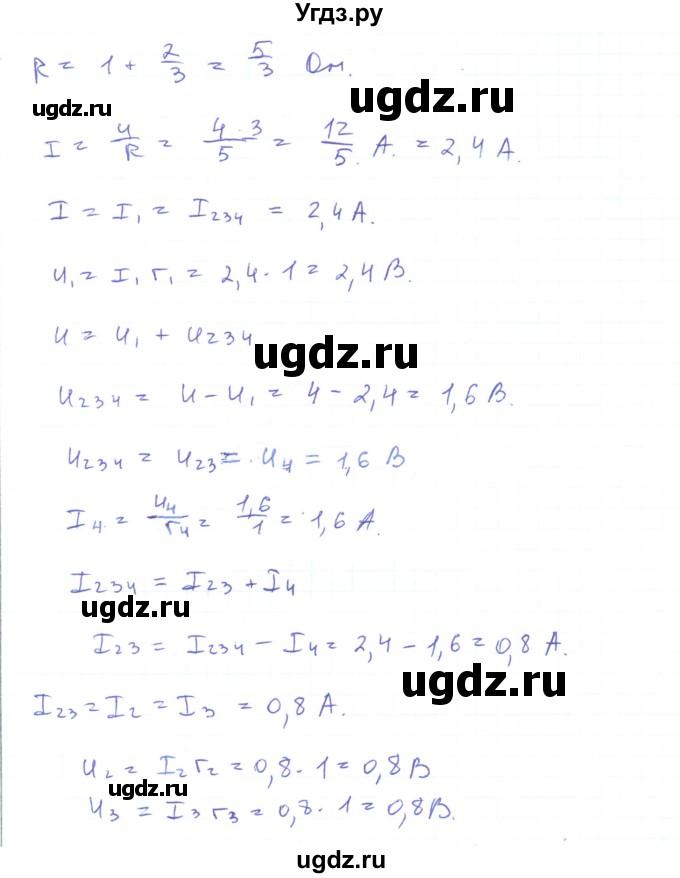 Угдз.ру
R = 1 + 2/3 = 5/3 Ом.
ugdz.ru
ugdz.ru
I = U/R = 4·3/5 = 12/5 А. = 2,4 А.
I = I₁ = I₂₃₄ = 2,4 А.
U₁ = I₁ r₁ = 2,4 · 1 = 2,4 В.
U = U₁ + U₂₃₄
ugdz.ru
U₂₃₄ = U – U₁ = 4 – 2,4 = 1,6 В.
U₂₃₄ = U₂₃ = U₄ = 1,6 В
I₄ = U₄/r₄ = 1,6/1 = 1,6 А.
I₂₃₄ = I₂₃ + I₄
ugdz.ru
I₂₃ = I₂₃₄ – I₄ = 2,4 – 1,6 = 0,8 А.
ugdz.ru
I₂₃ = I₂ = I₃ = 0,8 А.
U₂ = I₂ r₂ = 0,8 · 1 = 0,8 В
ugdz.ru
U₃ = I₃ r₃ = 0,8 · 1 = 0,8 В.
ugdz.ru